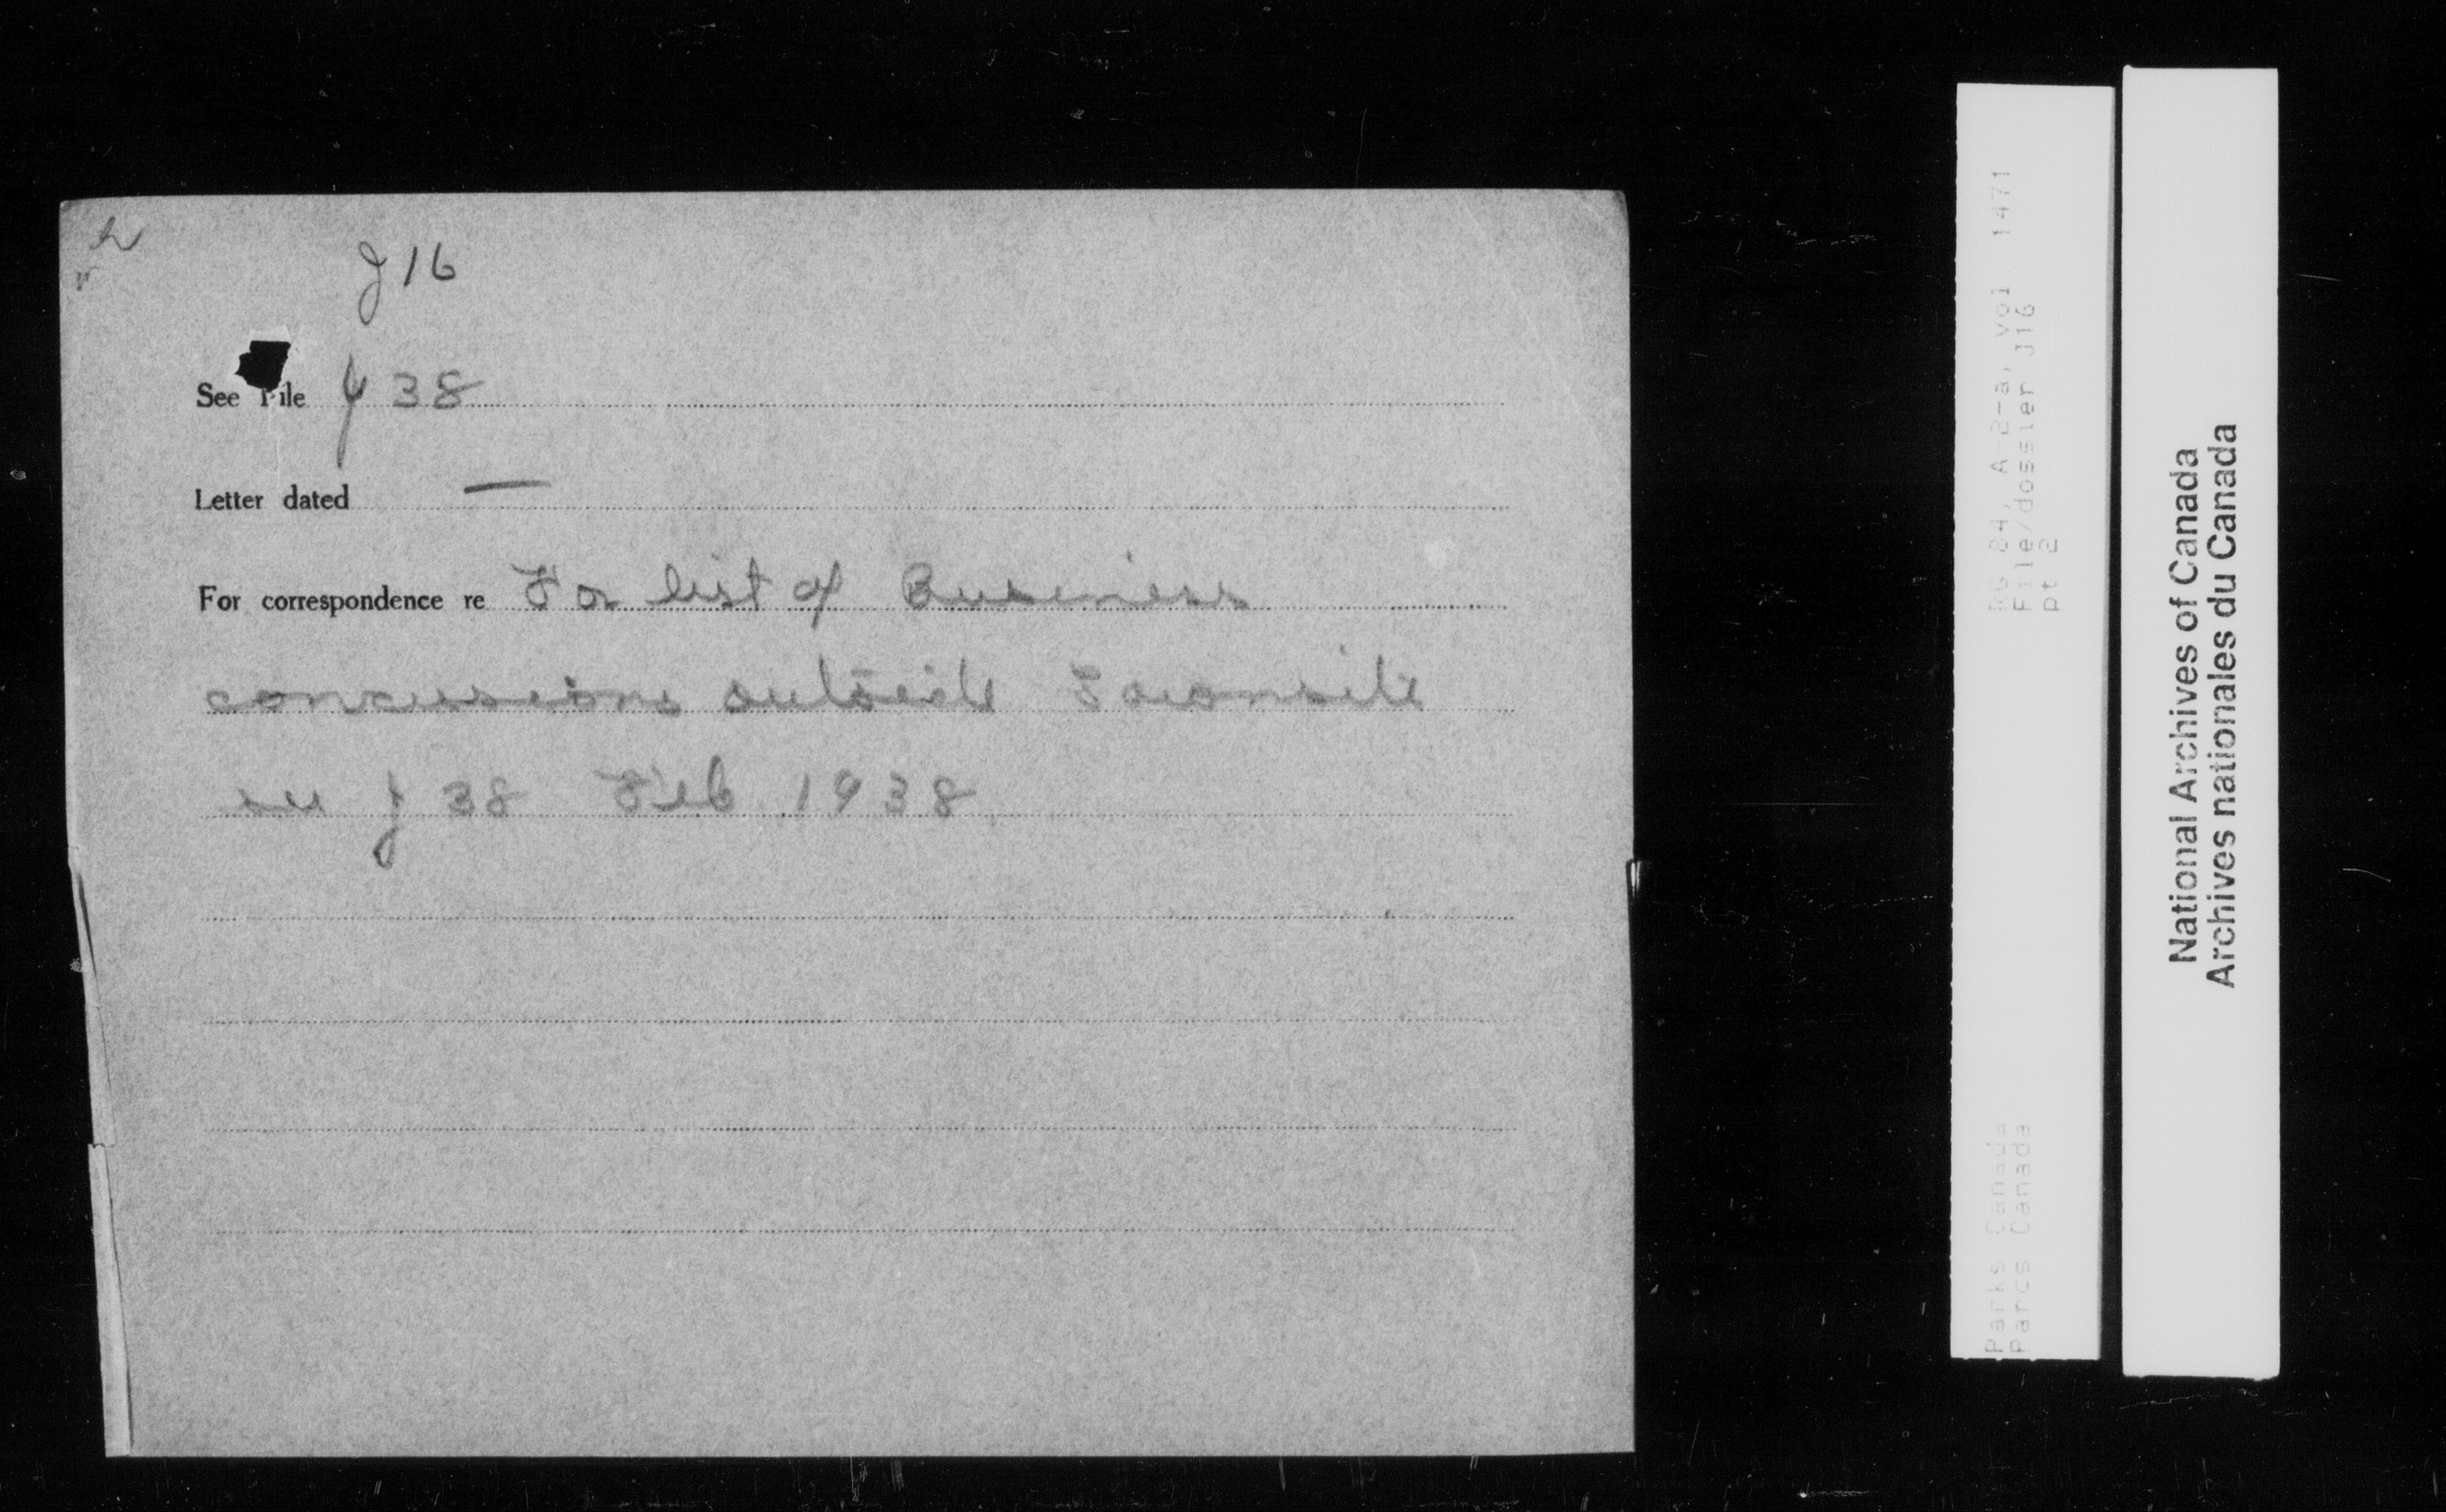 J16
See File J 38
Letter dated —
For correspondence re For list of Business
concessions outside Townsite
see J 38 Feb 1938
RG 84, A-2-a, Vol. 1471
File/dossier J16
pt 2
Parks Canada
Parcs Canada
National Archives of Canada
Archives nationales du Canada